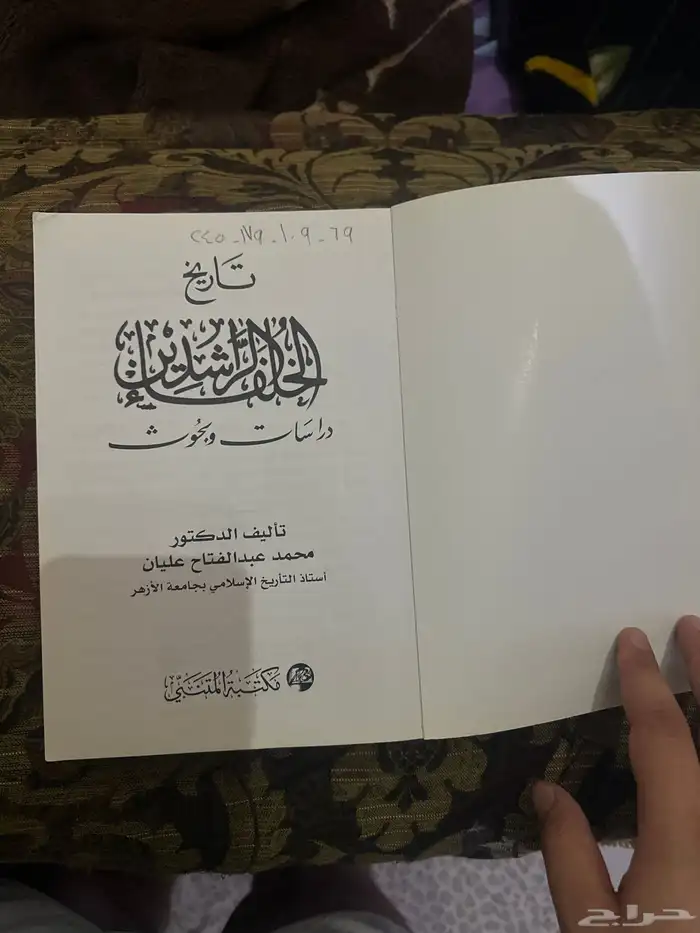 ٢٤٥ - ١٧٩ - ١٠٩ - ٦٩
تاريخ
الخلفاء الراشدين
دراسات وبحوث
تأليف الدكتور
محمد عبدالفتاح عليان
أستاذ التأريخ الإسلامي بجامعة الأزهر
مكتبة المتنبي
حراج